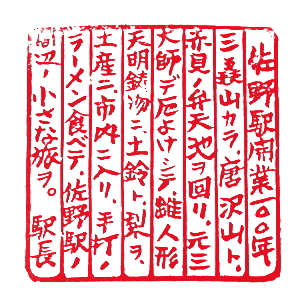 佐野駅開業一〇〇年
三毳山カラ、唐沢山ト、
赤見ノ弁天地ヲ回リ、元三
大師デ厄よけシテ、雛人形
天明鋳物ニ、土鈴ト、梨ヲ、
土産ニ、市内ニ入リ、手打ノ
ラーメン食ベテ、佐野駅ノ
周辺ノ小さな旅ヲ。 駅長